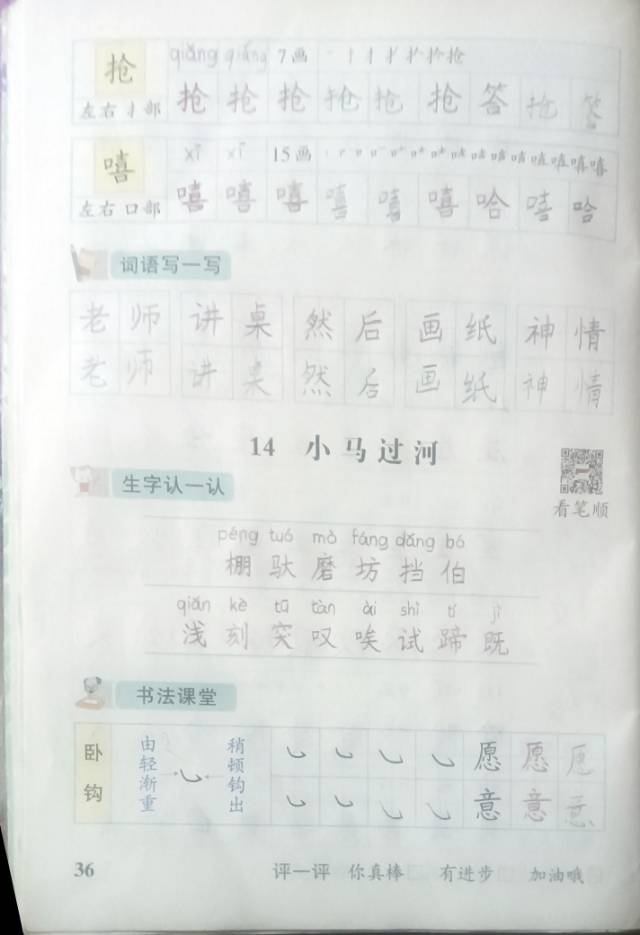 qiǎng qiǎng 7画
抢 抢 抢 抢 抢 抢 抢 答 抢 答
左右 扌部
xī xī 15画
嘻 嘻 嘻 嘻 嘻 嘻 嘻 哈 嘻 哈
左右 口部
词语写一写
老师 讲桌 然后 画纸 神情
老师 讲桌 然后 画纸 神情
14 小马过河
生字认一认
看笔顺
péng tuó mò fáng dǎng bó
棚 驮 磨 坊 挡 伯
qiǎn kè tū tàn ài shì tí jì
浅 刻 突 叹 唉 试 蹄 既
书法课堂
卧钩 由轻渐重 稍顿钩出 愿 愿 愿
意 意 意
36 评一评 你真棒 有进步 加油哦